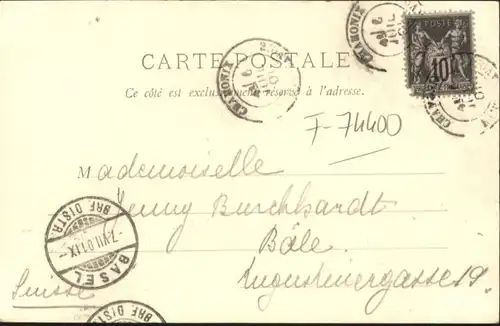 CARTE POSTALE
Ce côté est exclusivement réservé à l'adresse.
CHAMONIX
CHAMONIX
POSTE
10
F-74400
Mademoiselle
Jenny Burckhardt
Bâle
Augustinergasse 19.
Suisse
BASEL
BRF. DISTR.
-7.VII.01.IX-
BRF. DISTR.